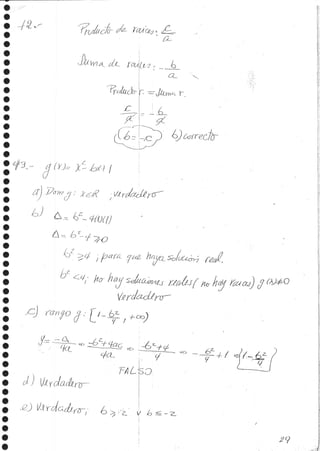 42.- Producto de raíces: c/a
Suma de raíces: -b/a
Producto r. = Suma r.
c/a = -b/a
b = -c b) correcto
43.- g(x) = x² - bx + 1
a) Dom g: x∈R, verdadero
b) Δ = b² - 4(1)(1)
Δ = b² - 4 ≥ 0
b² ≥ 4, para que haya solución real.
b² < 4; no hay soluciones reales (no hay raíces) g(x) ≠ 0
Verdadero
c) rango g: [1 - b²/4, +∞)
y = -Δ/4a ⇒ -b² + 4ac / 4a ⇒ -b² + 4 / 4 ⇒ -b²/4 + 1 ⇒ 1 - b²/4
FALSO
d) Verdadero
e) Verdadero; b ≥ 2 ∨ b ≤ -2
29